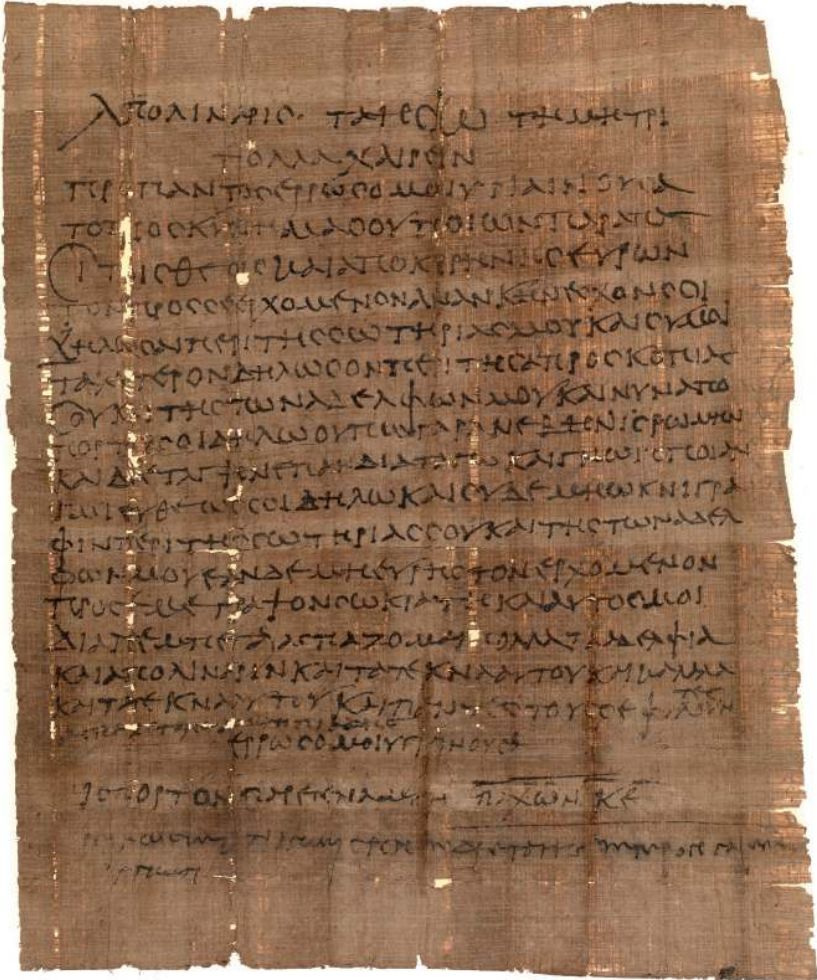 ΑΠΟΛΙΝΑΡΙϹ ΤΑΗϹΙΩ ΤΗ ΜΗΤΡΙ
ΠΟΛΛΑ ΧΑΙΡΕΙΝ
ΠΡΟ ΠΑΝΤΟϹ ΕΡΡΩϹΟ ΜΟΙ ΥΓΙΑΙΝΟΥϹΑ
ΤΟ ΠΡΟϹΚΥΝΗΜΑ ϹΟΥ ΠΟΙΩΝ ΠΑΡΑ ΠΑ
ϹΙ ΤΟΙϹ ΘΕΟΙϹ ΚΑΙ ΑΠΟ ΚΥΡΗΝΗϹ ΕΥΡΩΝ
ΤΟΝ ΠΡΟϹ ϹΕ ΕΡΧΟΜΕΝΟΝ ΑΝΑΝΚΗΝ ΕϹΧΟΝ ϹΟΙ
ΔΗΛΩϹΑΙ ΠΕΡΙ ΤΗϹ ϹΩΤΗΡΙΑϹ ΜΟΥ ΚΑΙ ϹΥ ΜΟΙ
ΤΑΧΥΤΕΡΟΝ ΔΗΛΩϹΟΝ ΠΕΡΙ ΤΗϹ ΑΠΡΟϹΚΟΠΙΑϹ
ϹΟΥ ΚΑΙ ΤΗϹ ΤΩΝ ΑΔΕΛΦΩΝ ΜΟΥ ΚΑΙ ΝΥΝ ΑΠΟ
ΠΟΡΤΟΥ ϹΟΙ ΔΗΛΩ ΟΥΠΩ ΓΑΡ ΑΝΕΒΗΝ ΙϹ ΡΩΜΗΝ
ΚΑΙ ΔΙΕΤΑΓΗΝ ΕΠΑΝ ΔΙΑΤΑΓΩ ΚΑΙ ΓΝΩ ΙϹ ΠΟΙΑΝ
ΙΜΙ ΕΥΘΕΩϹ ϹΟΙ ΔΗΛΩ ΚΑΙ ϹΥ ΔΕ ΜΗ ΩΚΝΙ ΓΡΑ
ΦΙΝ ΠΕΡΙ ΤΗϹ ϹΩΤΗΡΙΑϹ ϹΟΥ ΚΑΙ ΤΗϹ ΤΩΝ ΑΔΕΛ
ΦΩΝ ΜΟΥ ΕΑΝ ΔΕ ΜΗ ΕΥΡΗϹ ΤΟΝ ΕΡΧΟΜΕΝΟΝ
ΠΡΟϹ ΕΜΕ ΓΡΑΨΟΝ ϹΩΚΡΑΤΙ ΚΑΙ ΑΥΤΟϹ ΜΟΙ
ΔΙΑΠΕΜΠΕΤΑΙ ΑϹΠΑΖΟΜΑΙ ΠΟΛΛΑ ΤΑ ΑΔΕΛΦΙΑ
ΚΑΙ ΑΠΟΛΙΝΑΡΙΝ ΚΑΙ ΤΑ ΤΕΚΝΑ ΑΥΤΟΥ ΚΑΙ
ΚΑΙ ΤΑ ΤΕΚΝΑ ΑΥΤΟΥ ΚΑΙ ΠΑΝΤΕϹ ΤΟΥϹ ϹΕ ΦΙΛΟΥΝ
ΤΕϹ
ΕΡΡΩϹΟ ΜΟΙ
ΙϹ ΠΟΡΤΟΝ ΠΑΡΕΓΕΝΑΜΗΝ ΠΑΧΩΝ ΚΕ